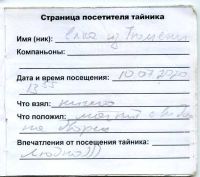 Страница посетителя тайника
Имя (ник): Елка из Тюмени
Компаньоны:
Дата и время посещения: 10.07.2020
13 55
Что взял: ничего
Что положил: магнит с
на
Впечатления от посещения тайника:
)))